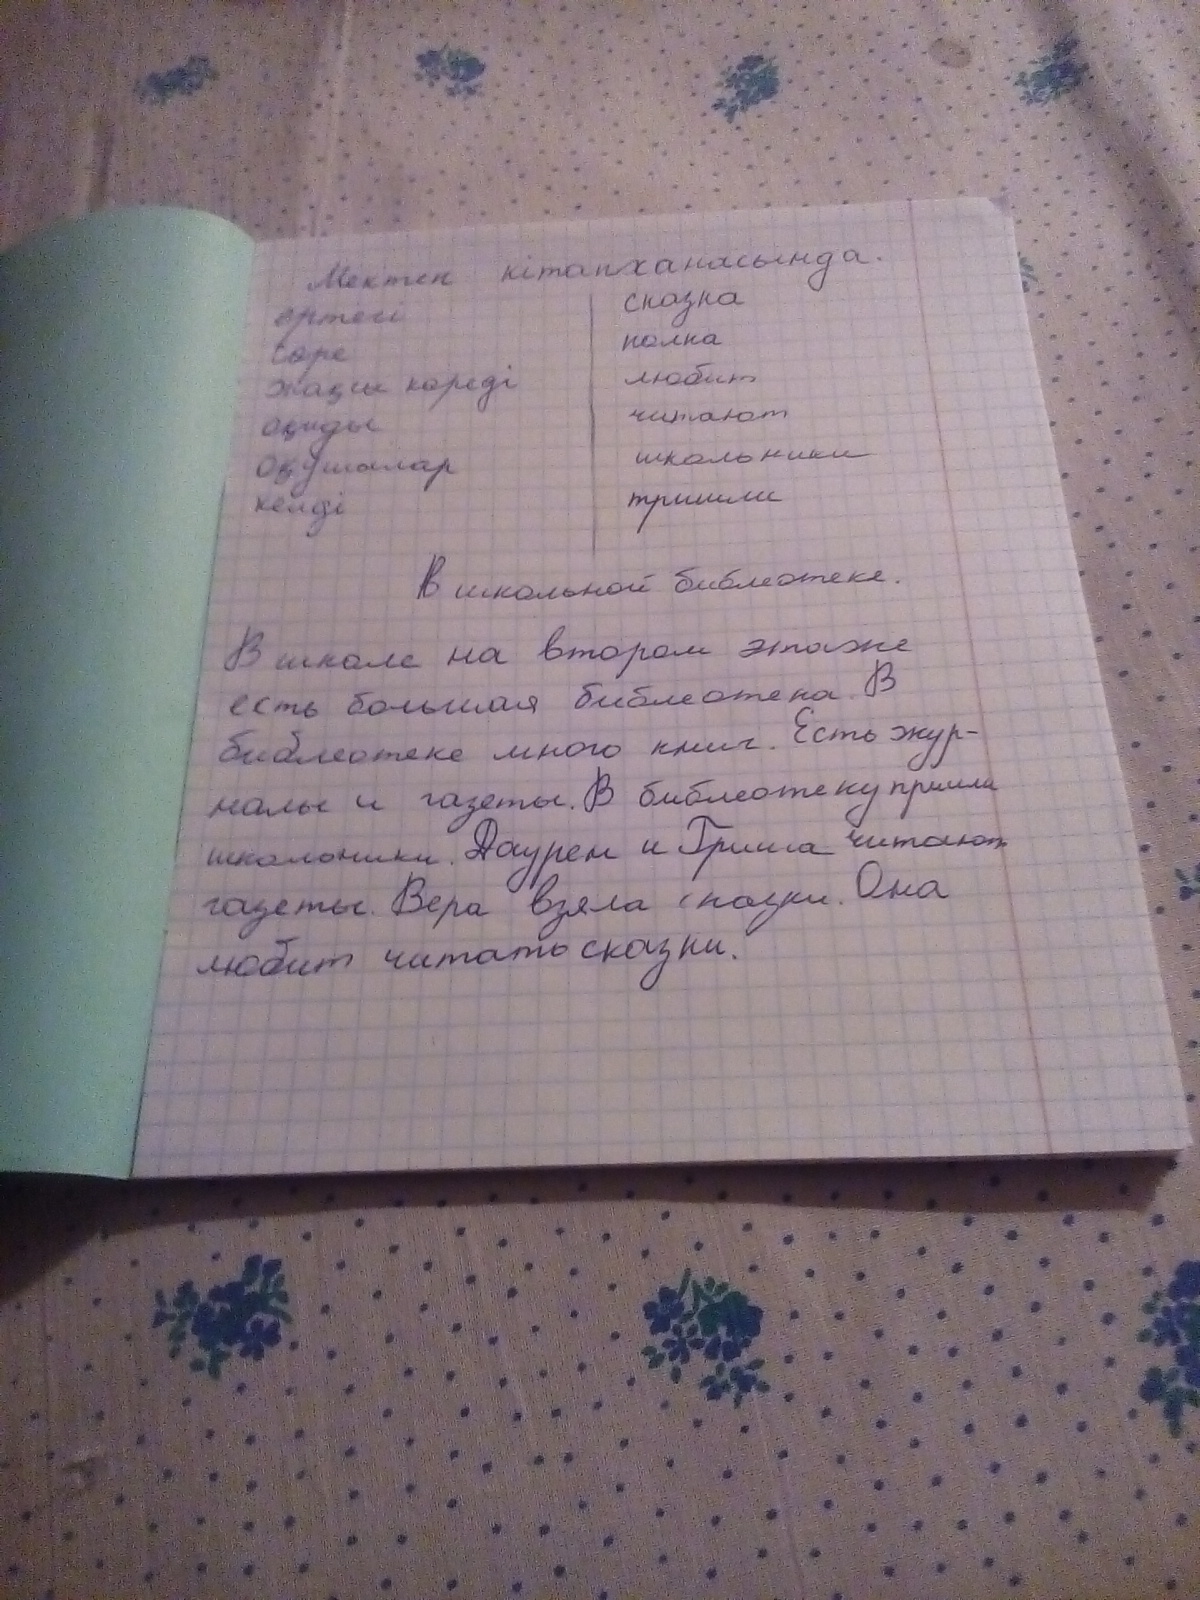 Мектеп кітапханасында.
ертегі сказка
сөре полка
жақсы көреді любит
оқиды читают
оқушылар школьники
келді пришли
В школьной библиотеке.
В школе на втором этаже
есть большая библиотека. В
библиотеке много книг. Есть жур-
налы и газеты. В библиотеку пришли
школьники. Даурен и Гриша читают
газеты. Вера взяла сказки. Она
любит читать сказки.